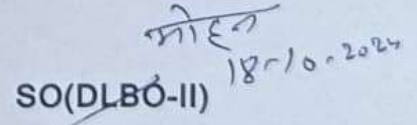 मोहन
18-10-2024
SO(DLBO-II)